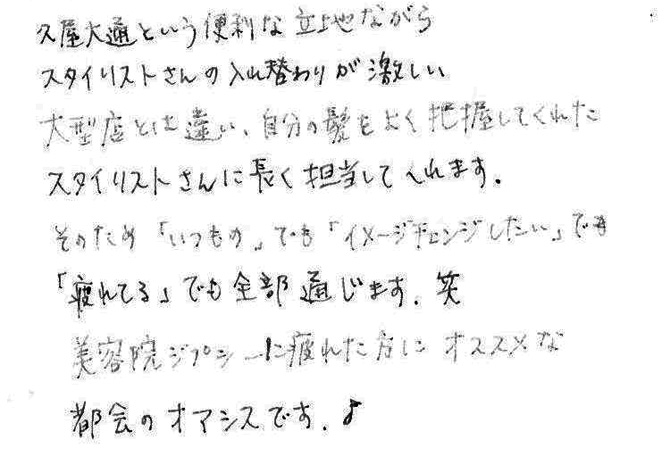 久屋大通という便利な立地ながら
スタイリストさんの入れ替わりが激しい
大型店とは違い、自分の髪をよく把握してくれた
スタイリストさんに長く担当してくれます。
そのため「いつもの」でも「イメージチェンジしたい」でも
「疲れてる」でも全部通じます。笑
美容院ジプシーに疲れた方にオススメな
都会のオアシスです。♪